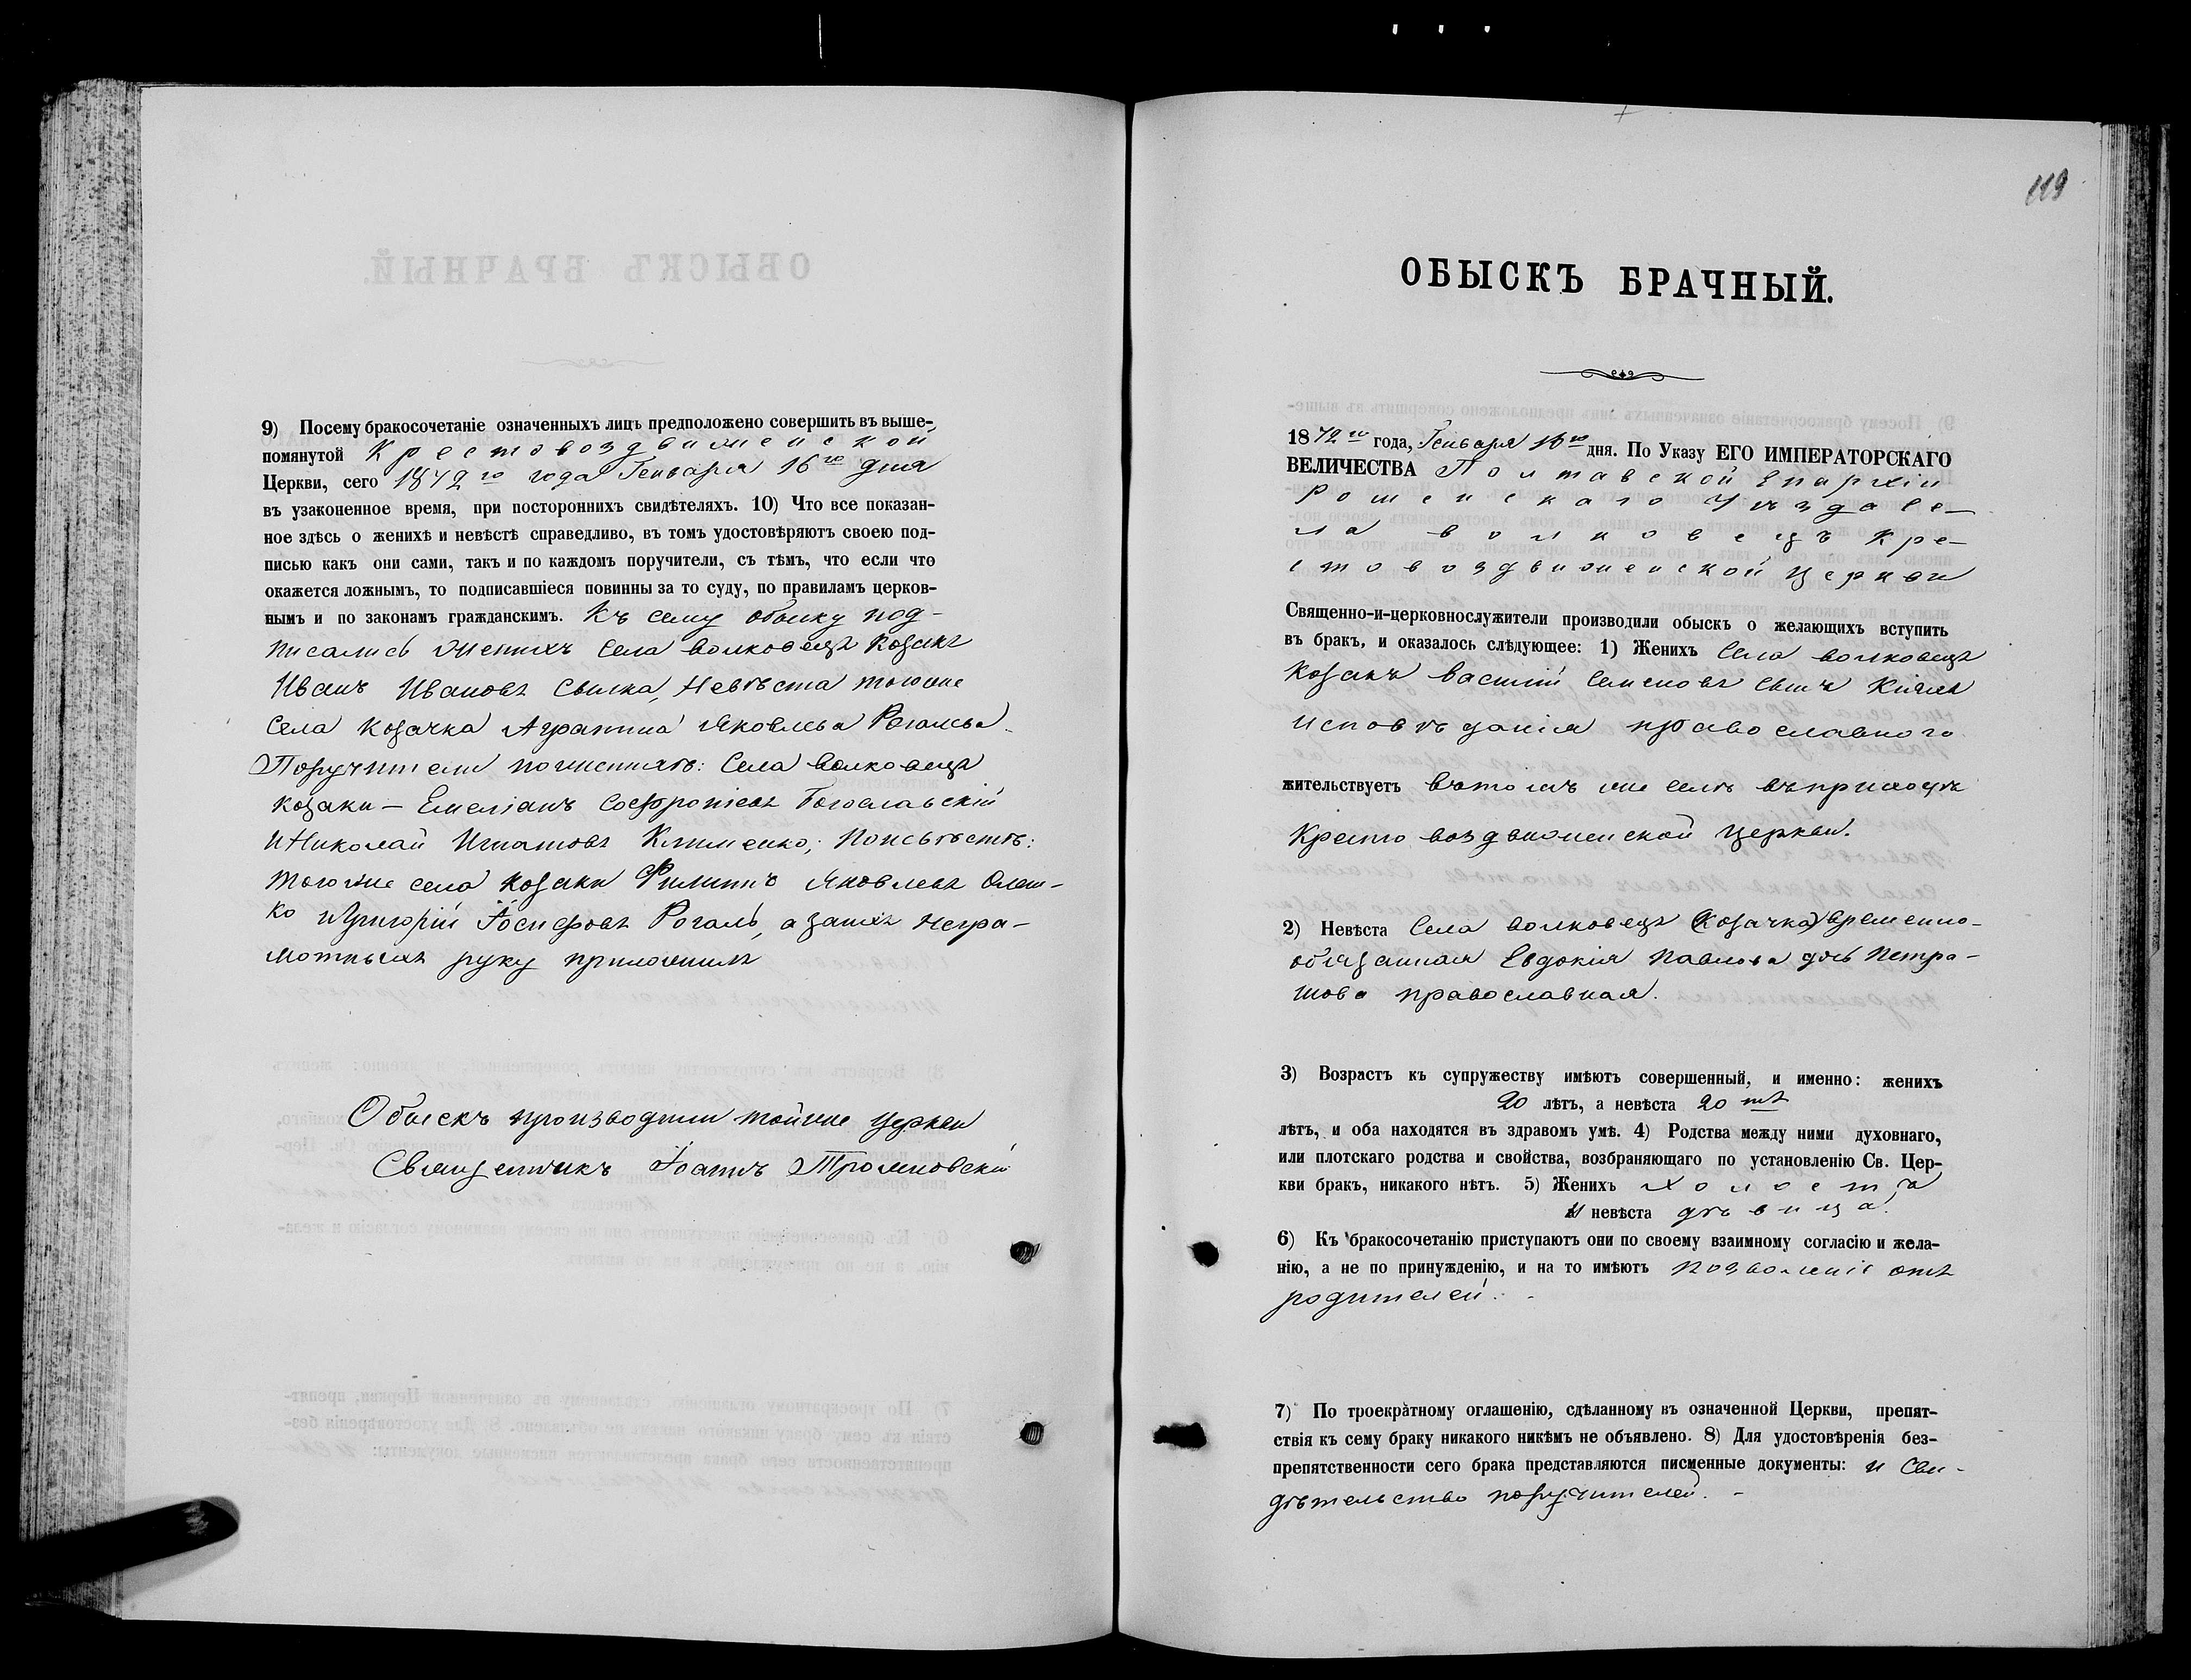 9) Посему бракосочетаніе означенныхъ лицъ предположено совершить въ выше-
помянутой Крестовоздвиженской
Церкви, сего 1872го года Генваря 16го дня
въ узаконенное время, при постороннихъ свидѣтеляхъ. 10) Что все показан-
ное здѣсь о женихѣ и невѣстѣ справедливо, въ томъ удостовѣряютъ своею под-
писью какъ они сами, такъ и по каждомъ поручители, съ тѣмъ, что если что
окажется ложнымъ, то подписавшіеся повинны за то суду, по правиламъ церков-
нымъ и по законамъ гражданскимъ. Къ сему обыску под-
писались женихъ села волковецъ козакъ
Иванъ Ивановъ Свилка, Невѣста тогоже
села козачка Агрипина Яковлева Рогалева
Поручители поженихѣ: Села волковецъ
козаки – Емеліанъ Софроніевъ Богославскій
и Николай Игнатовъ Клименко; Поневѣстѣ:
тогоже села козаки Филипъ Яковлевъ Олеш-
ко и Григорій Іосифовъ Рогаль, а за нихъ негра-
мотныхъ руку приложилъ
Обыскъ производили тойже церкви
Священникъ Іоаннъ
119
ОБЫСКЪ БРАЧНЫЙ.
1872го года, Генваря 16го дня. По Указу ЕГО ИМПЕРАТОРСКАГО
ВЕЛИЧЕСТВА Полтавской Епархіи
Роменскаго Уѣзда се-
ла волковецъ Кре-
стовоздвиженской Церкви
Священно-и-церковнослужители производили обыскъ о желающихъ вступить
въ бракъ, и оказалось слѣдующее: 1) Женихъ Села волковецъ
козакъ василій Семеновъ сынъ
исповѣданія православного
жительствуетъ втомъ же селѣ въ приходѣ
Крестовоздвиженской церкви.
2) Невѣста Села волковецъ (козачка) временно-
обязанная Евдокія Павлова дочь Петра-
шова православная.
3) Возрастъ къ супружеству имѣютъ совершенный, и именно: женихъ
20 лѣтъ, а невѣста 20тъ
лѣтъ, и оба находятся въ здравомъ умѣ. 4) Родства между ними духовнаго,
или плотскаго родства и свойства, возбраняющаго по установленію Св. Цер-
кви бракъ, никакого нѣтъ. 5) Женихъ холостъ,
и невѣста дѣвица.
6) Къ бракосочетанію приступаютъ они по своему взаимному согласію и жела-
нію, а не по принужденію, и на то имѣютъ позволеніе отъ
родителей.
7) По троекратному оглашенію, сдѣланному въ означенной Церкви, препят-
ствія къ сему браку никакого никѣмъ не объявлено. 8) Для удостовѣренія без-
препятственности сего брака представляются писменные документы: и Сви-
дѣтельство поручителей.